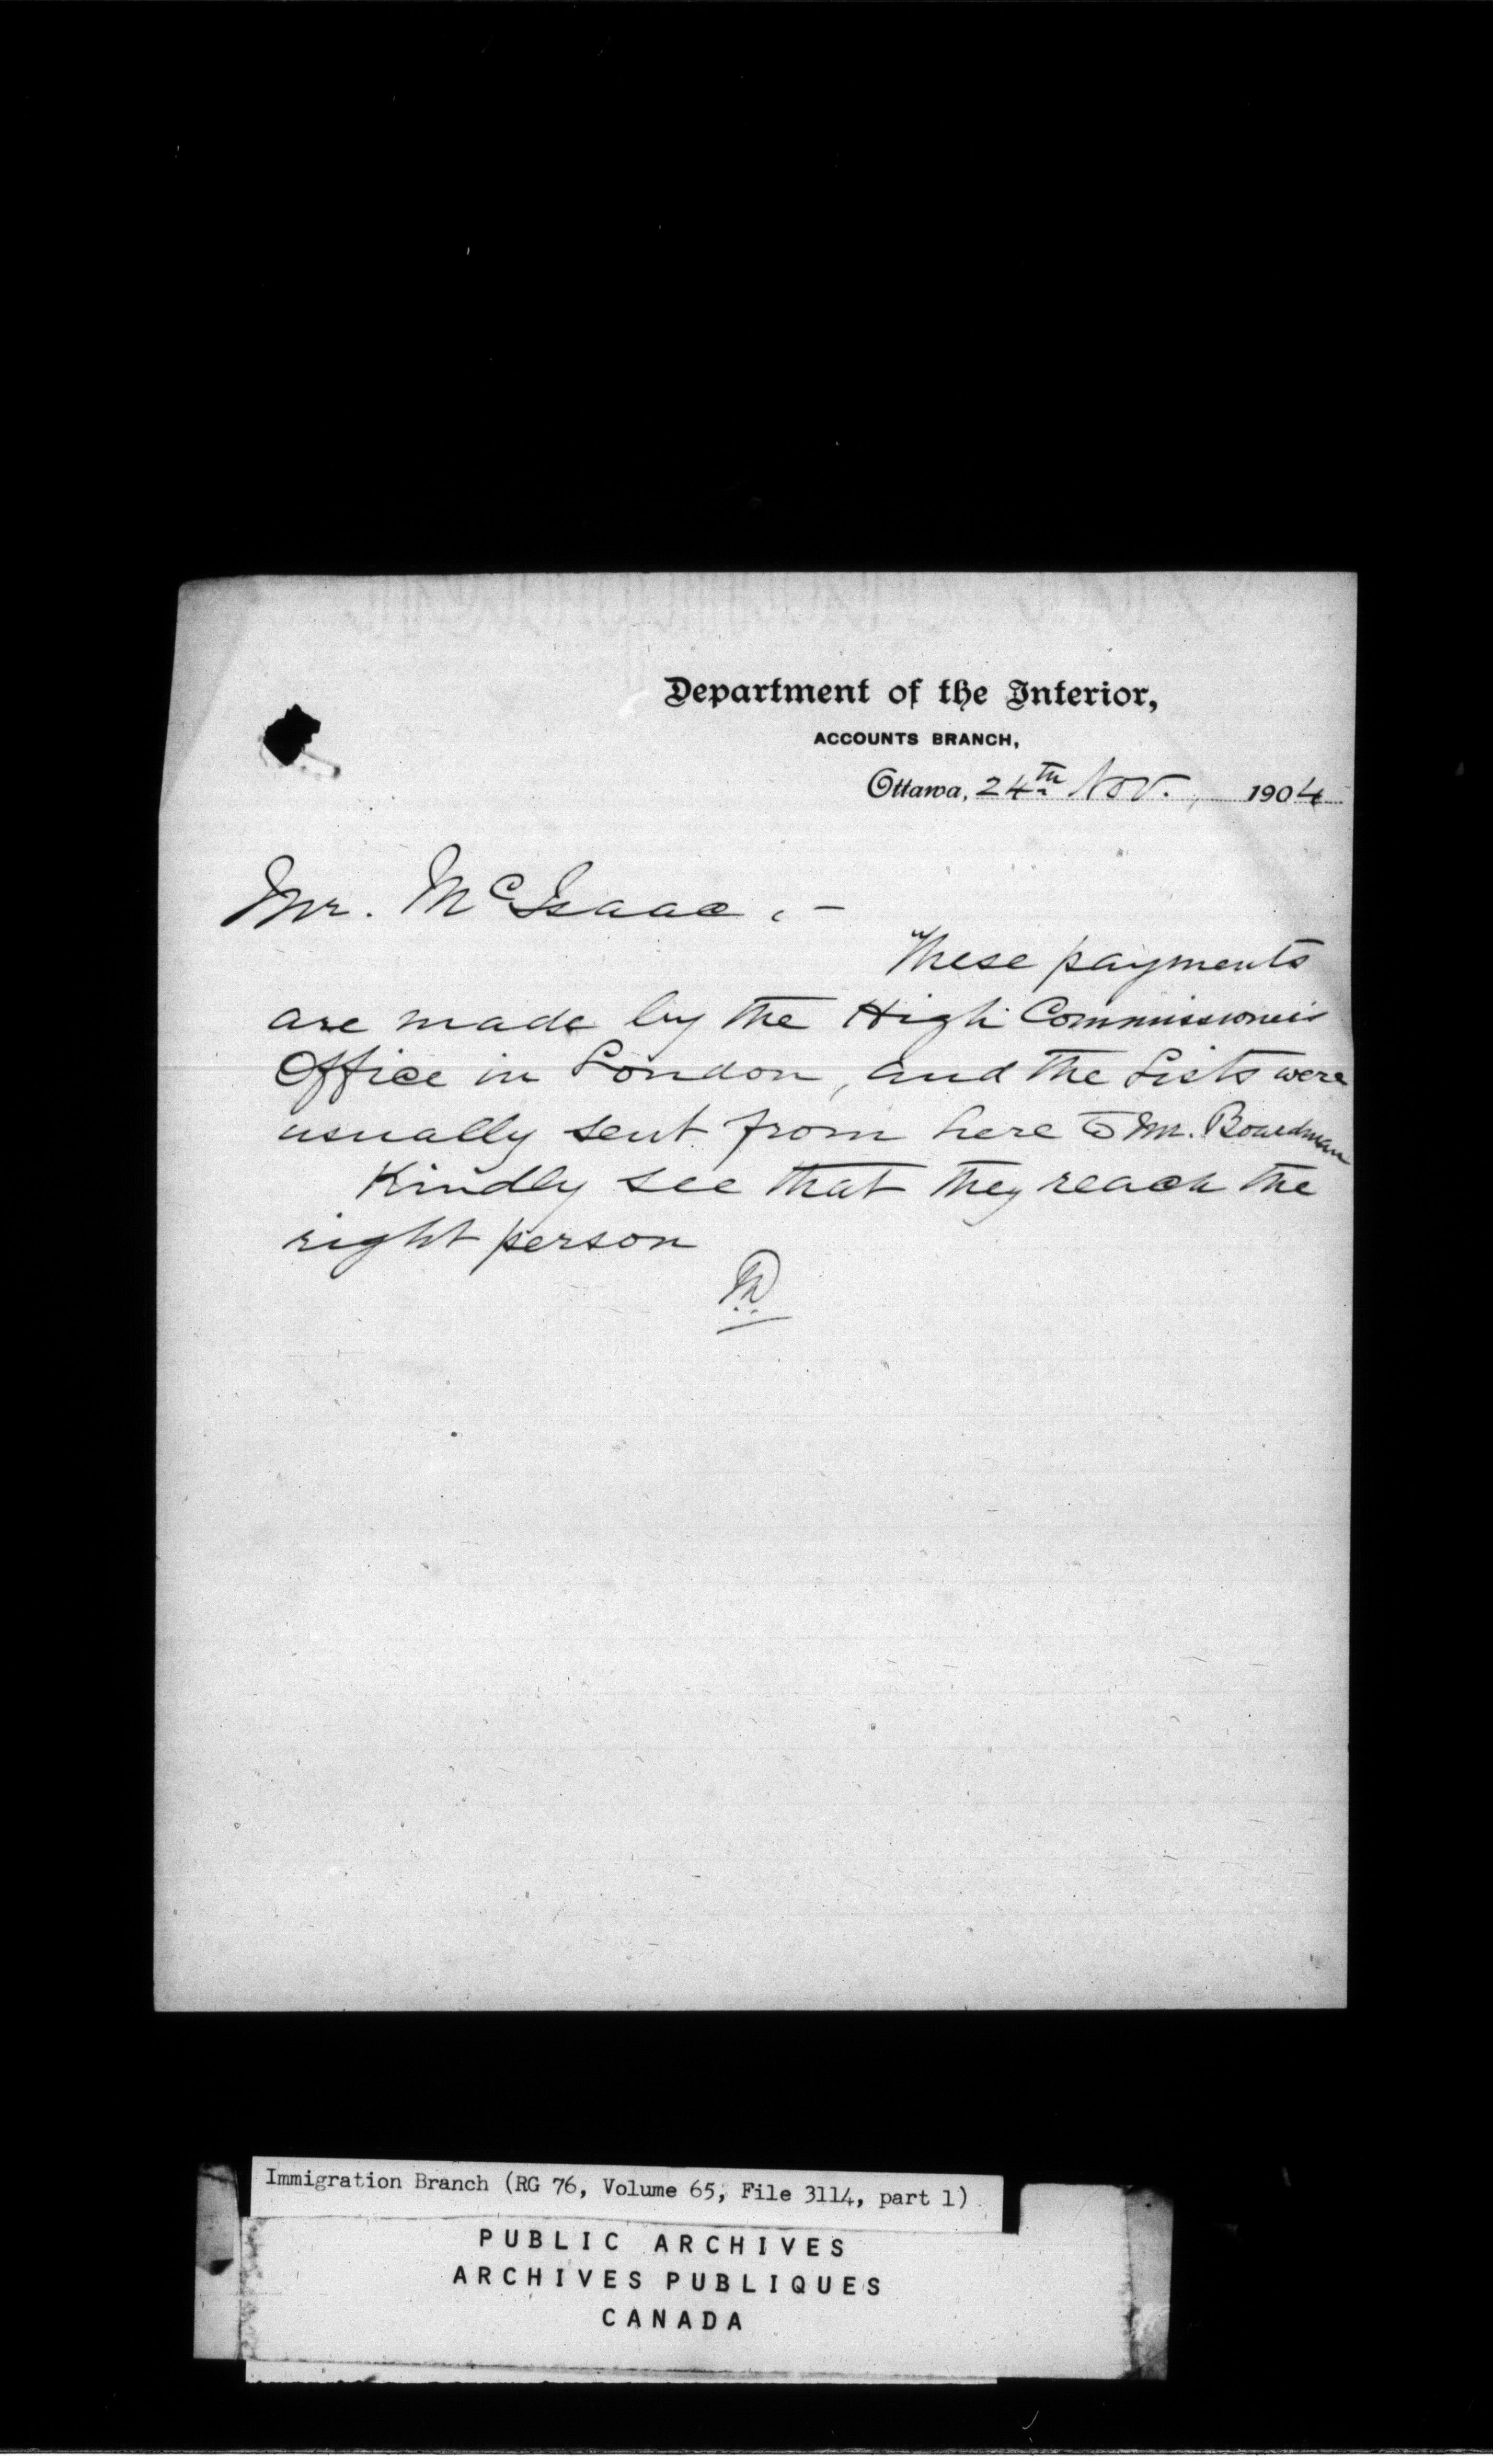 Department of the Interior,
ACCOUNTS BRANCH,
Ottawa, 24th Nov. 1904
Mr. McIsaac. —
These payments
are made by the High Commissioners
Office in London, and the Lists were
usually sent from here to Mr. Boardman
Kindly see that they reach the
right person
Immigration Branch (RG 76, Volume 65, File 3114, part 1)
PUBLIC ARCHIVES
ARCHIVES PUBLIQUES
CANADA